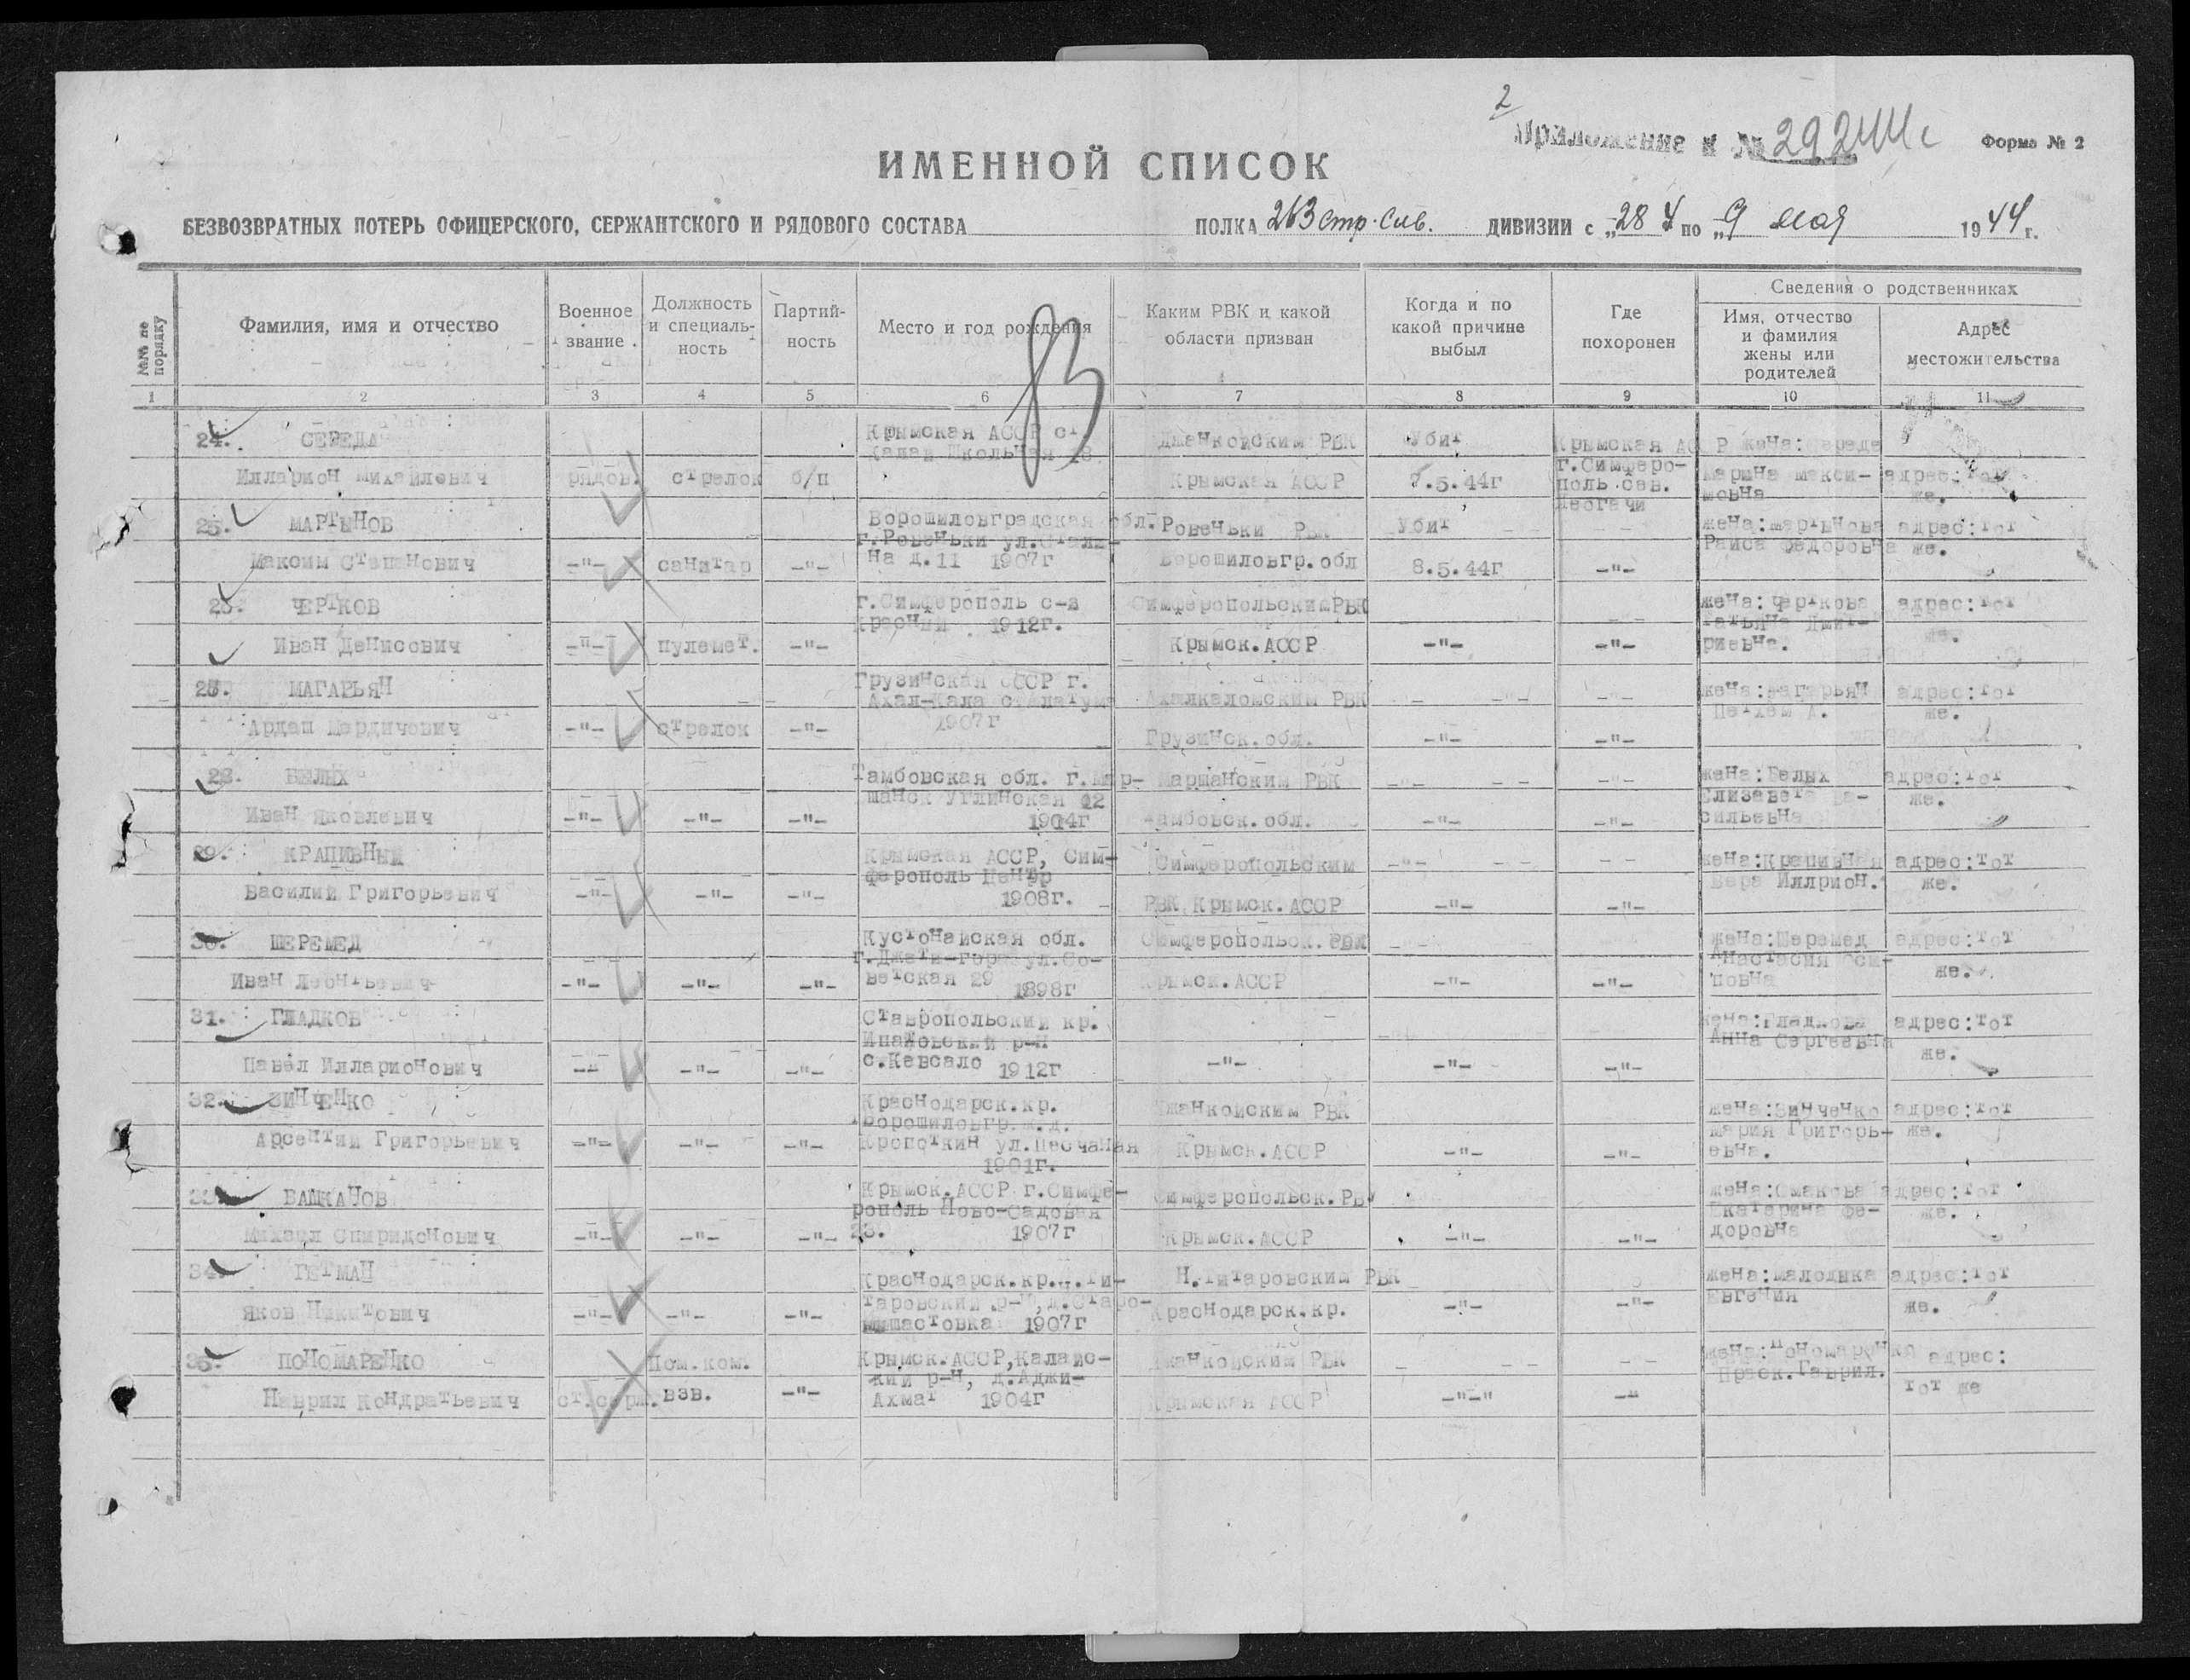 2
Приложение к № 29244с
Форма № 2
ИМЕННОЙ СПИСОК
БЕЗВОЗВРАТНЫХ ПОТЕРЬ ОФИЦЕРСКОГО, СЕРЖАНТСКОГО И РЯДОВОГО СОСТАВА ПОЛКА 263 стр. Сив. ДИВИЗИИ с „28 4 по „9 мая 1944 г.
№№ по порядку
Фамилия, имя и отчество
Военное звание
Должность и специальность
Партийность
Место и год рождения
Каким РВК и какой области призван
Когда и по какой причине выбыл
Где похоронен
Сведения о родственниках
Имя, отчество и фамилия жены или родителей
Адрес местожительства
1 2 3 4 5 6 7 8 9 10 11
24. СЕРЕДА Крымская АССР ст. Джанкойским РВК Убит Крымская АССР жена: Середа
Школьная 18 г.Симферо-
Илларион Михайлович рядов. стрелок б/п Крымская АССР 7.5.44г поль сев. Марина Макси- адрес:тот
мовна же.
25. МАРТЫНОВ Ворошиловградская обл. Ровеньки РВК Убит жена:Мартынова адрес:тот
г.Ровеньки ул.Стали- Раиса Федоровна же.
Максим Степанович -"- санитар -"- на д.11 1907г Ворошиловгр.обл 8.5.44г -"-
ЧЕРТКОВ г.Симферополь с-з Симферопольским РВК жена:Черткова адрес:тот
Красный 1912г. Татьяна Дмит-
Иван Денисович -"- пулемет. -"- Крымск.АССР -"- -"- риевна. же.
МАГАРЬЯН Грузинская ССР г. жена:Магарьян адрес:тот
Ахал-Кала РВК А. же.
Ардаш -"- стрелок -"- 1907г Грузинск.обл. -"- -"-
28. БЕЛЫХ Тамбовская обл. г.Мор- Маршанским РВК жена:Белых адрес:тот
шанск 12 Елизавета Ва- же.
Иван Яковлевич -"- -"- -"- 1904г Тамбовск.обл. -"- -"- сильевна
29. КРАПИВНЫЙ Крымская АССР, Сим- Симферопольским жена:Крапивная адрес:тот
ферополь Центр Вера Иллрион. же.
Василий Григорьевич -"- -"- -"- 1908г. РВК Крымск.АССР -"- -"-
30. ШЕРЕМЕД Кустонайская обл. Симферопольск.РВК жена:Шеремед адрес:тот
г.Джети-гора ул.Со- Анастасия Оси-
Иван Леонтьевич -"- -"- -"- ветская 29 1898г Крымск.АССР -"- -"- повна же.
31. ГЛАДКОВ Ставропольский кр. жена:Гладкова адрес:тот
р-н Анна Сергеевна
Павел Илларионович -"- -"- -"- с.Кевсало 1912г -"- -"- -"- же.
32. ЗИНЧЕНКО Краснодарск.кр. Джанкойским РВК жена:Зинченко адрес:тот
Ворошиловгр.ж.д. Мария Григорь- же.
Арсентий Григорьевич -"- -"- -"- Кропоткин ул.Песчаная Крымск.АССР -"- -"- евна.
1901г.
33. БАШКАНОВ Крымск.АССР г.Симфе- Симферопольск.РВК жена: адрес:тот
рополь Ново-Садовая Екатерина Фе- же.
Михаил Спиридонович -"- -"- -"- 23. 1907г Крымск.АССР -"- -"- доровна
34. ГЕТМАН Краснодарск.кр.Н.Ти- Н.Титаровским РВК жена: адрес:тот
таровский р-н, Евгения
Яков Никитович -"- -"- -"- 1907г Краснодарск.кр. -"- -"- же.
35. ПОНОМАРЕНКО Пом.ком. Крымск.АССР,Калайс- Джанкойским РВК жена: адрес:
кий р-н, д.Аджи- Праск.Гаврил.
Гаврил Кондратьевич ст.серж. взв. -"- Ахмат 1904г Крымская АССР -"-" -" тот же